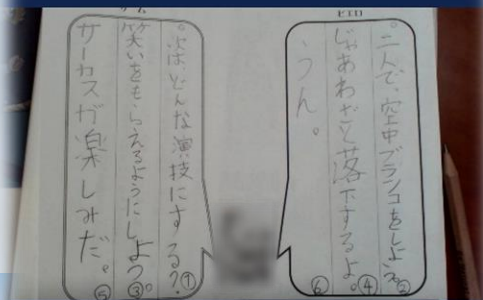 ピエロ
。二人で、空中ブランコをしよう②
じゃあわざと落下するよ。④
うん。⑥
次はどんな演技にする?①
笑いをもらえるようにしよう。③
サーカスが楽しみだ。⑤